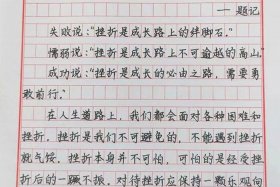 一 题记
失败说:"挫折是成长路上的绊脚石。"
懦弱说:"挫折是成长路上不可逾越的高山。"
成功说:"挫折是成长的必由之路,需要勇
敢前行。"
在人生道路上,我们都会面对各种困难和
挫折。挫折是我们不可避免的,不能遇到挫折
就气馁。挫折本身并不可怕,可怕的是经受挫
折后的一蹶不振。对待挫折应保持一颗乐观向